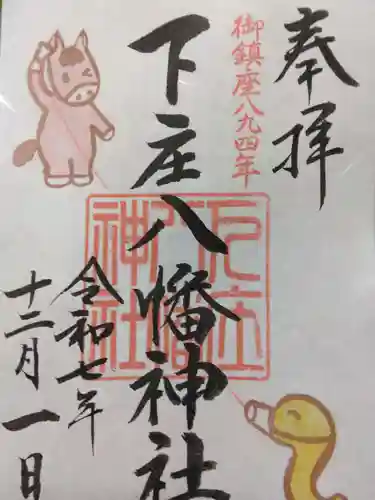 奉拝
御鎮座八九四年
下庄八幡神社
令和七年
十二月一日
下庄八幡神社